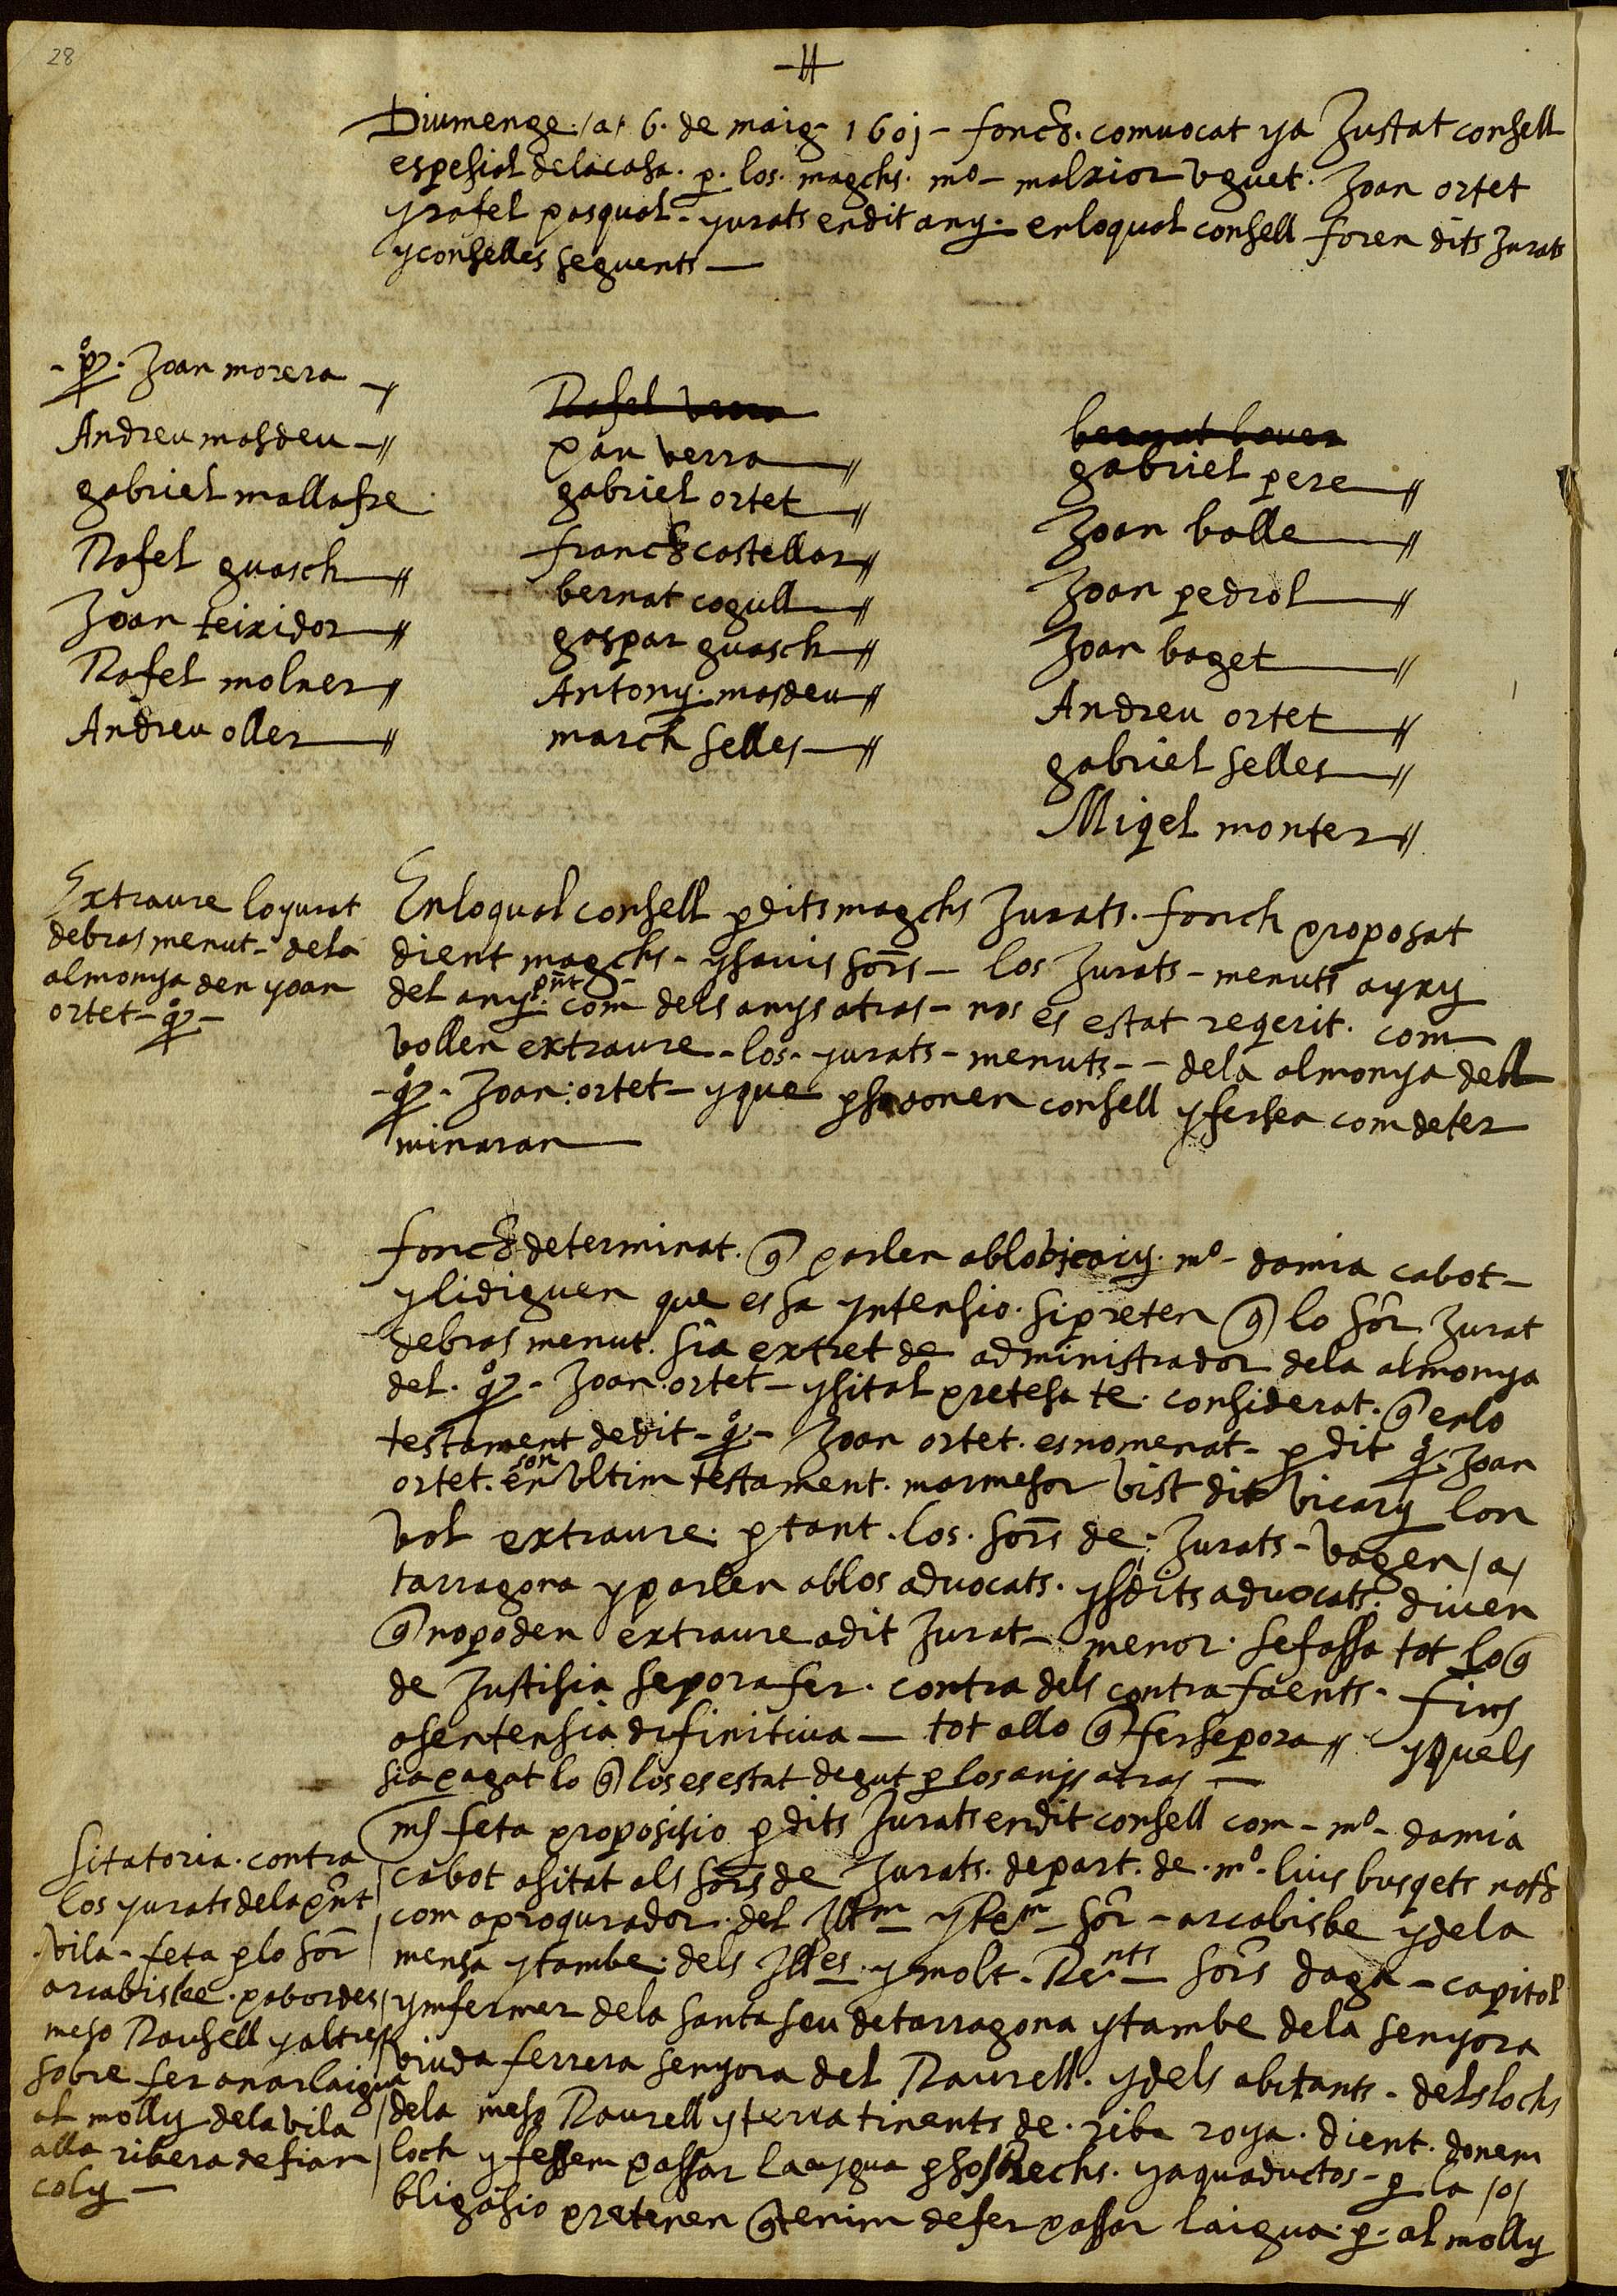 28
Diumenge /a/ 6. de maig 1601 - fonch. comuocat y a Justat consell
espesial de la casa. p. los. magchs. mº - malxior uguet. Joan ortet
y rafel pasqual - yurats en dit any. en lo qual consell foren dits Jurats
y conselles seguents -
- qº. Joan morera
Andreu masdeu
gabriel mallafre
Rafel guasch
Joan teixidor
Rafel molner
Andreu oller
Rafel
pau verra
gabriel ortet
franch castellar
bernat cogull
gaspar guasch
Antony. masdeu
march selles
bernat bouer
gabriel pere
Joan balle
Joan pedrol
Joan baget
Andreu ortet
gabriel selles
Miqel monter
Extraure lo yurat
de bras menut - de la
almonya den yoan
ortet - qº -
En lo qual consell p dits magchs Jurats. fonch proposat
dient magchs - y sauis sors - los Jurats - menuts axy
del any pnt com dels anys atras - nos es estat reqerit. com
vollen extraure - los - yurats - menuts - - de la almonya dell
- qº - Joan: ortet - y que p so donen consell y fersea com deter
minaran
fonch determinat. q parlen ab lo vicary. mº - damia cabot -
y li diguen que es sa yntensio. si preten q lo sor Jurat
de bras menut. sia extret de administrador de la almonya
del. qº - Joan. ortet - y si tal pretesa te. considerat. q en lo
testament de dit - qº - Joan ortet. es nomenat - p dit qº Joan
ortet. en son vltim testament. marmesor vist dit vicary lon
vol extraure. p tant. los. sors de. Jurats - vagen /a/
tarragona y parlen ab los aduocats. y si dits aduocats. diuen
q no poden extraure a dit Jurat - menor. se fassa tot lo q
de Justisia se pora fer. contra dels contrafaents. fins
a sentensia difinitiua - tot allo q fer se pora y quels
sia pagat lo q los es estat degut p los anys atras -
Sitatoria. contra
los yurats de la pnt
vila - feta p lo sor
arcabisbe. pabordes
meso Raurell y altres
sobre fer anar laigua
al molly de la vila
alla ribera de fran
coly -
ms feta proposisio p dits Jurats en dit consell com - mº - damia
cabot a sitat als sors de Jurats. de part. de. mº. luis busqets noth
com a proqurador. del Illm y Rem sor - arcabisbe y de la
mensa y tambe. dels Illes. y molt. Rents sors daga - capitol
y mfermer de la santa seu de tarragona y tambe de la senyora
viuda ferrera senyora del Raurell. y dels abitants - dels lochs
de la meso Raurell y terratinents de. riba roya. dient. donem
loch y fessem passar la aygua p sos rechs. y aquaductos - p la /o/
bligasio pretenen q tenim de fer passar laigua. p. al molly